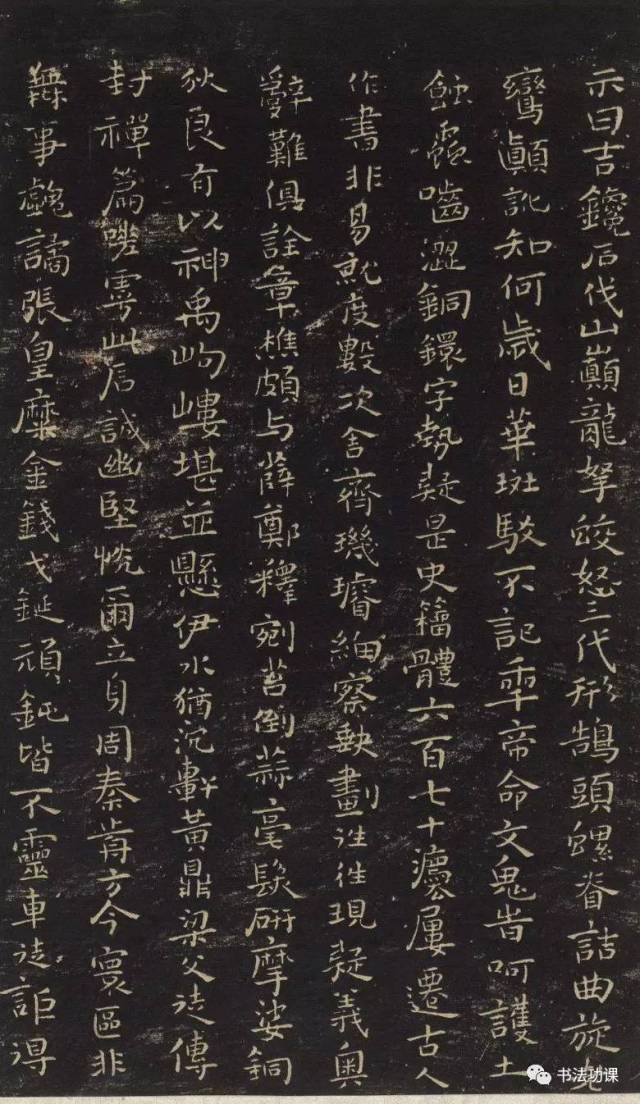 示曰吉鑱石伐山巔龍拏蛟怒三代形鵠頭螺脊詰曲旋
鸞顛訛知何歲日華斑駁不記年帝命文鬼皆呵護土
蝕露嚙澀銅鐶字勢疑是史籀體六百七十屢遷古人
作書非易就度數次舍齊璣璿細察軼劃往往現疑義奧
辭難俱詮章樵頗与薛鄭釋剜苔倒薤毫髮研摩娑銅
狄良有以神禹岣嶁堪並懸伊水猶沉軒黃鼎梁父徒傳
封禪篇嗟雩此石誠幽堅恍爾立身周秦肯方今寰區非
無事醜譎張皇糜金錢戈鋋頑鈍皆不靈車徒詎得
书法功课